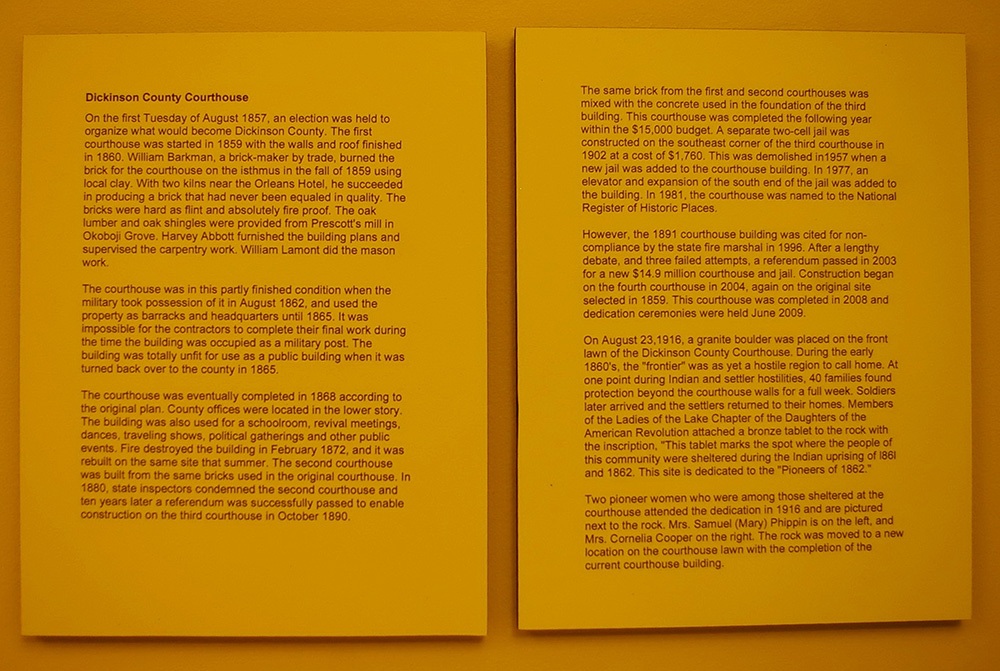 Dickinson County Courthouse
On the first Tuesday of August 1857, an election was held to
organize what would become Dickinson County. The first
courthouse was started in 1859 with the walls and roof finished
in 1860. William Barkman, a brick-maker by trade, burned the
brick for the courthouse on the isthmus in the fall of 1859 using
local clay. With two kilns near the Orleans Hotel, he succeeded
in producing a brick that had never been equaled in quality. The
bricks were hard as flint and absolutely fire proof. The oak
lumber and oak shingles were provided from Prescott's mill in
Okoboji Grove. Harvey Abbott furnished the building plans and
supervised the carpentry work. William Lamont did the mason
work.
The courthouse was in this partly finished condition when the
military took possession of it in August 1862, and used the
property as barracks and headquarters until 1865. It was
impossible for the contractors to complete their final work during
the time the building was occupied as a military post. The
building was totally unfit for use as a public building when it was
turned back over to the county in 1865.
The courthouse was eventually completed in 1868 according to
the original plan. County offices were located in the lower story.
The building was also used for a schoolroom, revival meetings,
dances, traveling shows, political gatherings and other public
events. Fire destroyed the building in February 1872, and it was
rebuilt on the same site that summer. The second courthouse
was built from the same bricks used in the original courthouse. In
1880, state inspectors condemned the second courthouse and
ten years later a referendum was successfully passed to enable
construction on the third courthouse in October 1890.
The same brick from the first and second courthouses was
mixed with the concrete used in the foundation of the third
building. This courthouse was completed the following year
within the $15,000 budget. A separate two-cell jail was
constructed on the southeast corner of the third courthouse in
1902 at a cost of $1,760. This was demolished in1957 when a
new jail was added to the courthouse building. In 1977, an
elevator and expansion of the south end of the jail was added to
the building. In 1981, the courthouse was named to the National
Register of Historic Places.
However, the 1891 courthouse building was cited for non-
compliance by the state fire marshal in 1996. After a lengthy
debate, and three failed attempts, a referendum passed in 2003
for a new $14.9 million courthouse and jail. Construction began
on the fourth courthouse in 2004, again on the original site
selected in 1859. This courthouse was completed in 2008 and
dedication ceremonies were held June 2009.
On August 23,1916, a granite boulder was placed on the front
lawn of the Dickinson County Courthouse. During the early
1860's, the "frontier" was as yet a hostile region to call home. At
one point during Indian and settler hostilities, 40 families found
protection beyond the courthouse walls for a full week. Soldiers
later arrived and the settlers returned to their homes. Members
of the Ladies of the Lake Chapter of the Daughters of the
American Revolution attached a bronze tablet to the rock with
the inscription, "This tablet marks the spot where the people of
this community were sheltered during the Indian uprising of l86l
and 1862. This site is dedicated to the "Pioneers of 1862."
Two pioneer women who were among those sheltered at the
courthouse attended the dedication in 1916 and are pictured
next to the rock. Mrs. Samuel (Mary) Phippin is on the left, and
Mrs. Cornelia Cooper on the right. The rock was moved to a new
location on the courthouse lawn with the completion of the
current courthouse building.